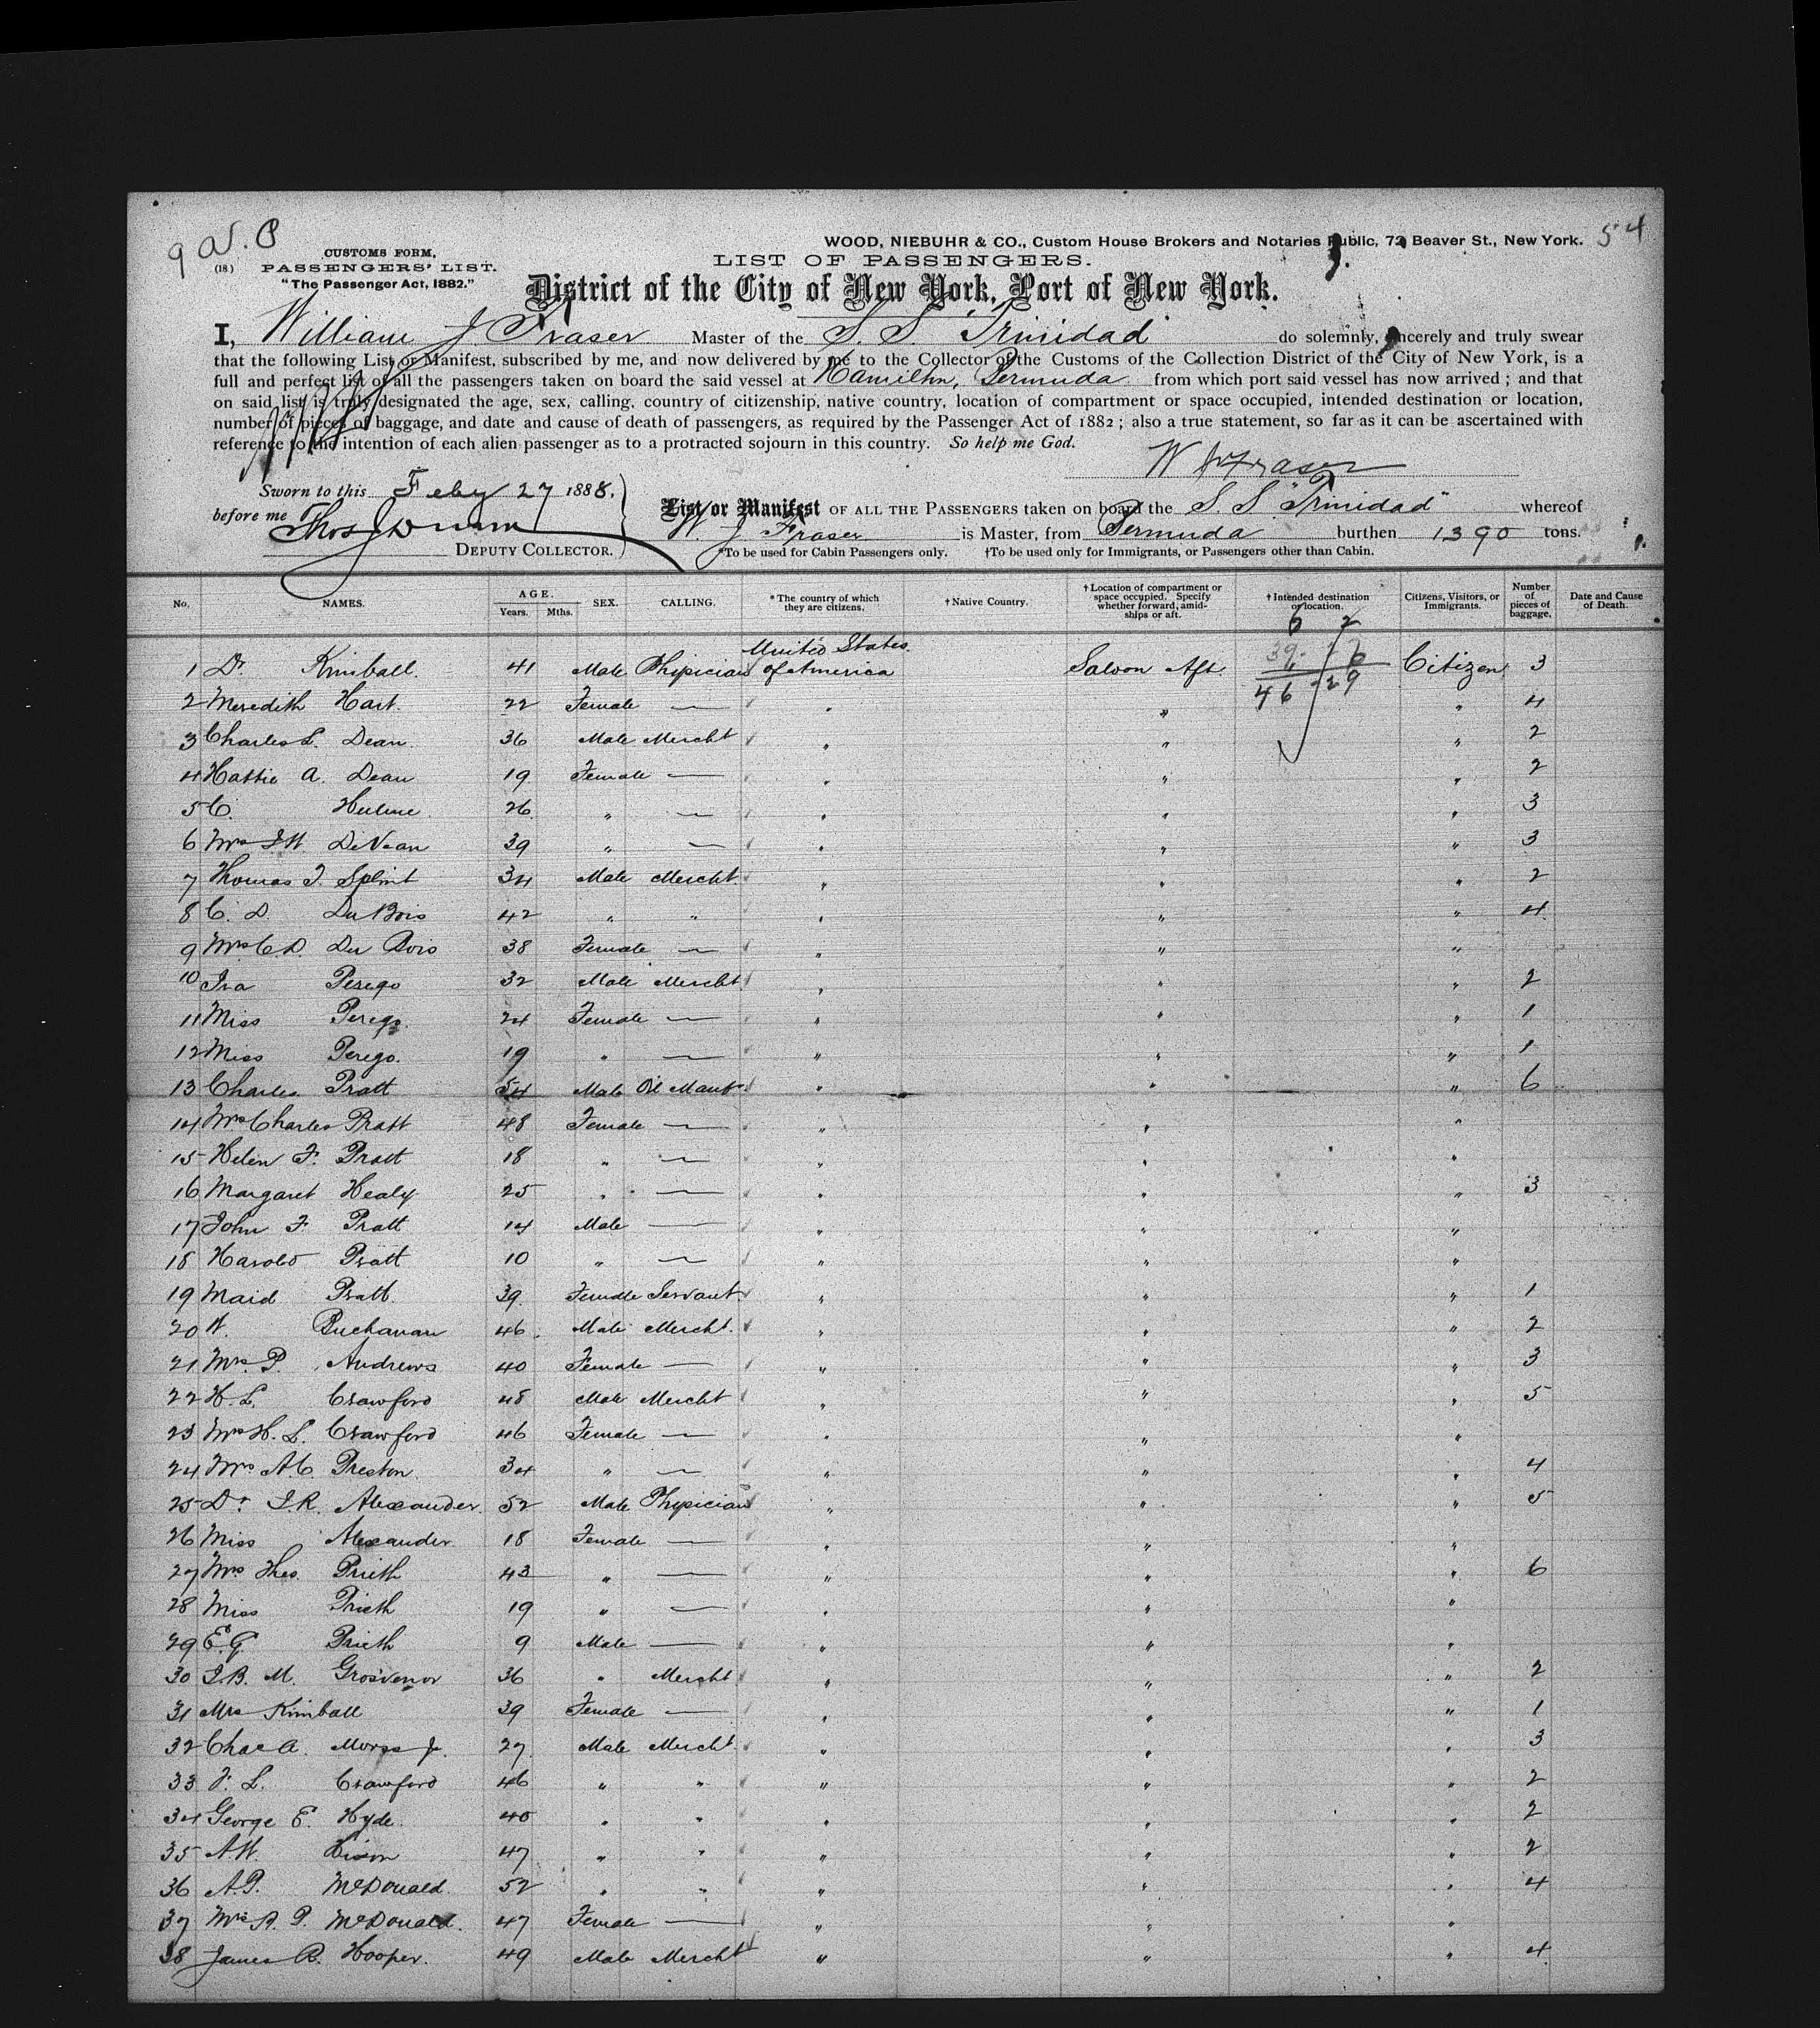 9 a.v. 8
WOOD, NIEBUHR & CO., Custom House Brokers and Notaries Public, 72 Beaver St., New York. 54
CUSTOMS FORM,
(18) PASSENGERS' LIST.
"The Passenger Act, 1882."
LIST OF PASSENGERS.
District of the City of New York, Port of New York.
I, William J. Fraser Master of the S. S. Trinidad do solemnly, sincerely and truly swear
that the following List or Manifest, subscribed by me, and now delivered by me to the Collector of the Customs of the Collection District of the City of New York, is a
full and perfect list of all the passengers taken on board the said vessel at Hamilton, Bermuda from which port said vessel has now arrived ; and that
on said list is truly designated the age, sex, calling, country of citizenship, native country, location of compartment or space occupied, intended destination or location,
number of pieces of baggage, and date and cause of death of passengers, as required by the Passenger Act of 1882 ; also a true statement, so far as it can be ascertained with
reference to the intention of each alien passenger as to a protracted sojourn in this country. So help me God.
W J Fraser
Sworn to this Feby 27 1888.
before me Thos J Dunn
DEPUTY COLLECTOR.
List or Manifest OF ALL THE PASSENGERS taken on board the S. S. "Trinidad" whereof
W. J. Fraser is Master, from Bermuda burthen 1390 tons.
*To be used for Cabin Passengers only. †To be used only for Immigrants, or Passengers other than Cabin.
No. NAMES. AGE. Years. Mths. SEX. CALLING. * The country of which they are citizens. † Native Country. † Location of compartment or space occupied. Specify whether forward, amidships or aft. † Intended destination or location. Citizens, Visitors, or Immigrants. Number of pieces of baggage. Date and Cause of Death.
1 Dr. Kimball. 41 Male Physician United States of America Saloon Aft. Citizen 3
46 29
2 Meredith Hart. 22 Female — " " " 4
3 Charles L. Dean. 36 Male Mercht " " " 2
4 Hattie A. Dean 19 Female — " " " 2
5 C. Hulme 26 " — " " " 3
6 Mrs J W. DeVean 39 " — " " " 3
7 Thomas J. Splint 34 Male Mercht. " " " 2
8 C. D. DuBois 42 " " " " " 4
9 Mrs C.D. Du Bois 38 Female — " " "
10 Ira Perego 32 Male Mercht " " " 2
11 Miss Perego. 24 Female — " " " 1
12 Miss Perego. 19 " — " " " 1
13 Charles Pratt 54 Male Oil Manf. " " " 6
14 Mrs Charles Pratt 48 Female — " " "
15 Helen F. Pratt 18 " — " " "
16 Margaret Healy 25 " — " " " 3
17 John F. Pratt 14 Male — " " "
18 Harold Pratt 10 " — " " "
19 Maid Pratt. 39 Female Servant. " " " 1
20 W. Buchanan 46 Male Mercht. " " " 2
21 Mrs. P. Andrews 40 Female — " " " 3
22 H. L. Crawford 48 Male Mercht " " " 5
23 Mrs H. L. Crawford 46 Female — " " "
24 Mrs A.C. Preston. 34 " — " " " 4
25 Dr. J.R. Alexander. 52 Male Physician " " " 5
26 Miss Alexander 18 Female — " " "
27 Mrs Theo. Prieth 43 " — " " " 6
28 Miss Prieth 19 " — " " "
29 E. G. Prieth 9 Male — " " "
30 J.B. M. Grosvenor 36 " Mercht " " " 2
31 Mrs Kimball 39 Female — " " " 1
32 Chas A. Morss Jr. 27 Male Mercht. " " " 3
33 F. L. Crawford 46 " " " " " 2
34 George E. Hyde. 40 " " " " " 2
35 A.W. 47 " " " " " 2
36 A.P. McDonald. 52 " " " " " 4
37 Mrs A. P. McDonald. 47 Female — " " "
38 James R. Hooper. 49 Male Mercht " " " 4